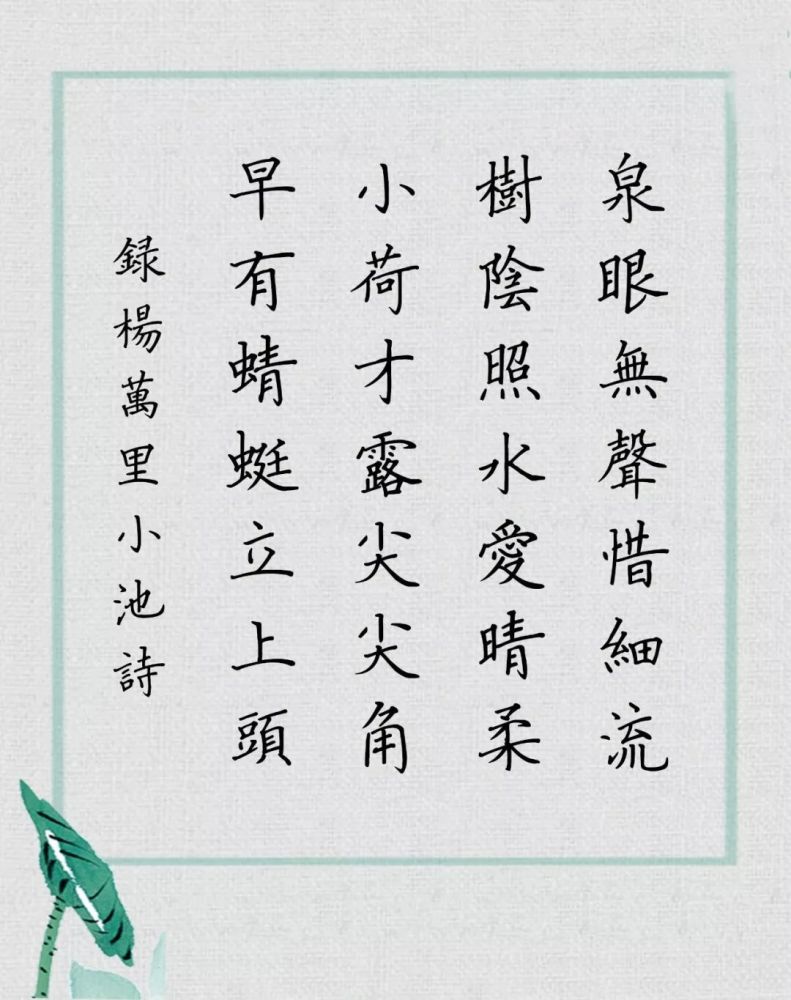 泉眼無聲惜細流
樹陰照水愛晴柔
小荷才露尖尖角
早有蜻蜓立上頭
録楊萬里小池詩